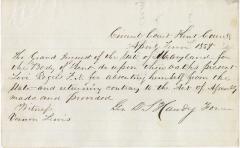 Circuit Court, Kent County
April Term 1858
The Grand Jurors of the State of Maryland for
the Body of Kent do upon their oaths present
Levi Rogers F.N. for absenting himself from the
State and returning contrary to the Act of Assembly
made and provided
Witness
Vernon Lewis
Geo. D. S. Handy Foreman